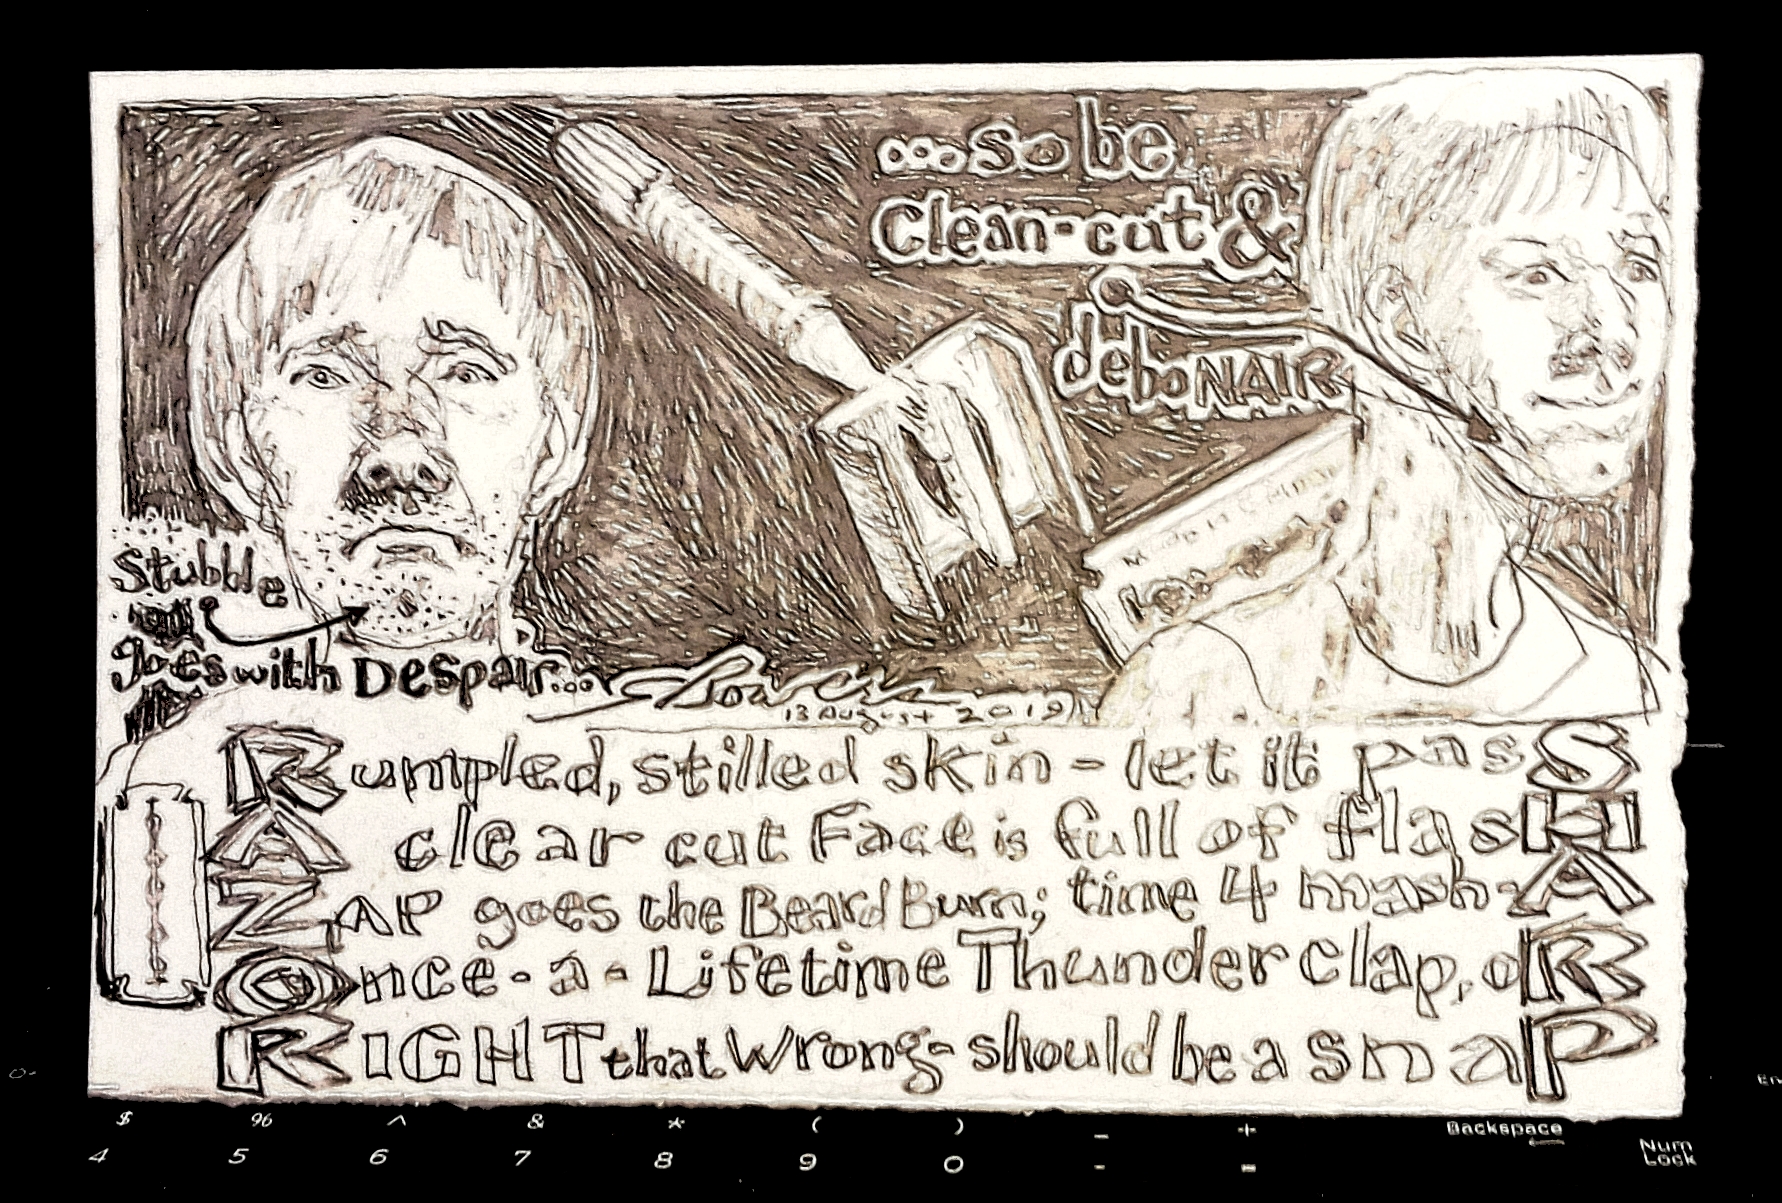 ...so be
Clean-cut &
deboNAIR
Stubble
goes with Despair...
13 August 2019
Rumpled, stilled skin - let it pasS
clear cut Face is full of flasH
ZAP goes the Beard Burn; time 4 mash-A
Once-a-Lifetime Thunder clap, oR
RIGHT that Wrong- should be a snaP
RAZOR
SHARP
$ % ^ & * ( ) _ + Backspace
4 5 6 7 8 9 0 - = Num
Lock